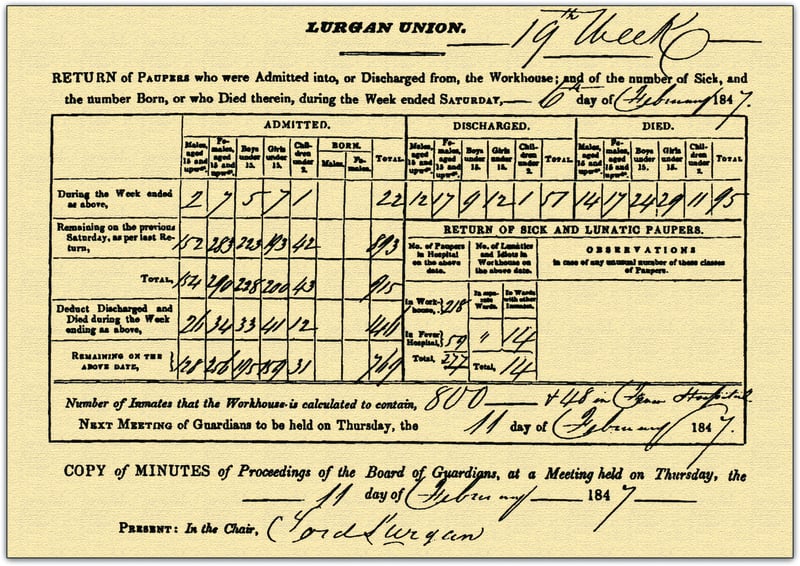 LURGAN UNION. — 19th Week
RETURN of PAUPERS who were Admitted into, or Discharged from, the Workhouse; and of the number of Sick, and
the number Born, or who Died therein, during the Week ended SATURDAY, — 6th day of February 1847.
ADMITTED. DISCHARGED. DIED.
Males, aged 15 and upwds. Females, aged 15 and upwds. Boys under 15. Girls under 15. Children under 2. BORN. Males. Females. TOTAL. Males, aged 15 and upwds. Females, aged 15 and upwds. Boys under 15. Girls under 15. Children under 2. TOTAL. Males, aged 15 and upwds. Females, aged 15 and upwds. Boys under 15. Girls under 15. Children under 2. TOTAL.
During the Week ended as above, 2 7 5 7 1 22 12 17 9 12 1 51 14 17 24 29 11 95
Remaining on the previous Saturday, as per last Return, 152 283 223 193 42 893
TOTAL, 154 290 228 200 43 915
Deduct Discharged and Died during the Week ending as above, 26 34 33 41 12 146
REMAINING ON THE ABOVE DATE, 128 256 195 159 31 769
RETURN OF SICK AND LUNATIC PAUPERS.
No. of Paupers in Hospital on the above date. No. of Lunatics and Idiots in Workhouse on the above date. OBSERVATIONS
in case of any unusual number of these classes of Paupers.
In Workhouse, 218 In separate Wards. In Wards with other Inmates.
In Fever Hospital, 59 " 14
Total, 277 Total, 14
Number of Inmates that the Workhouse is calculated to contain, 800 — + 48 in Fever Hospital.
NEXT MEETING of Guardians to be held on Thursday, the 11 day of February 1847.
COPY of MINUTES of Proceedings of the Board of Guardians, at a Meeting held on Thursday, the
— 11 day of February — 1847 —
PRESENT: In the Chair, Lord Lurgan